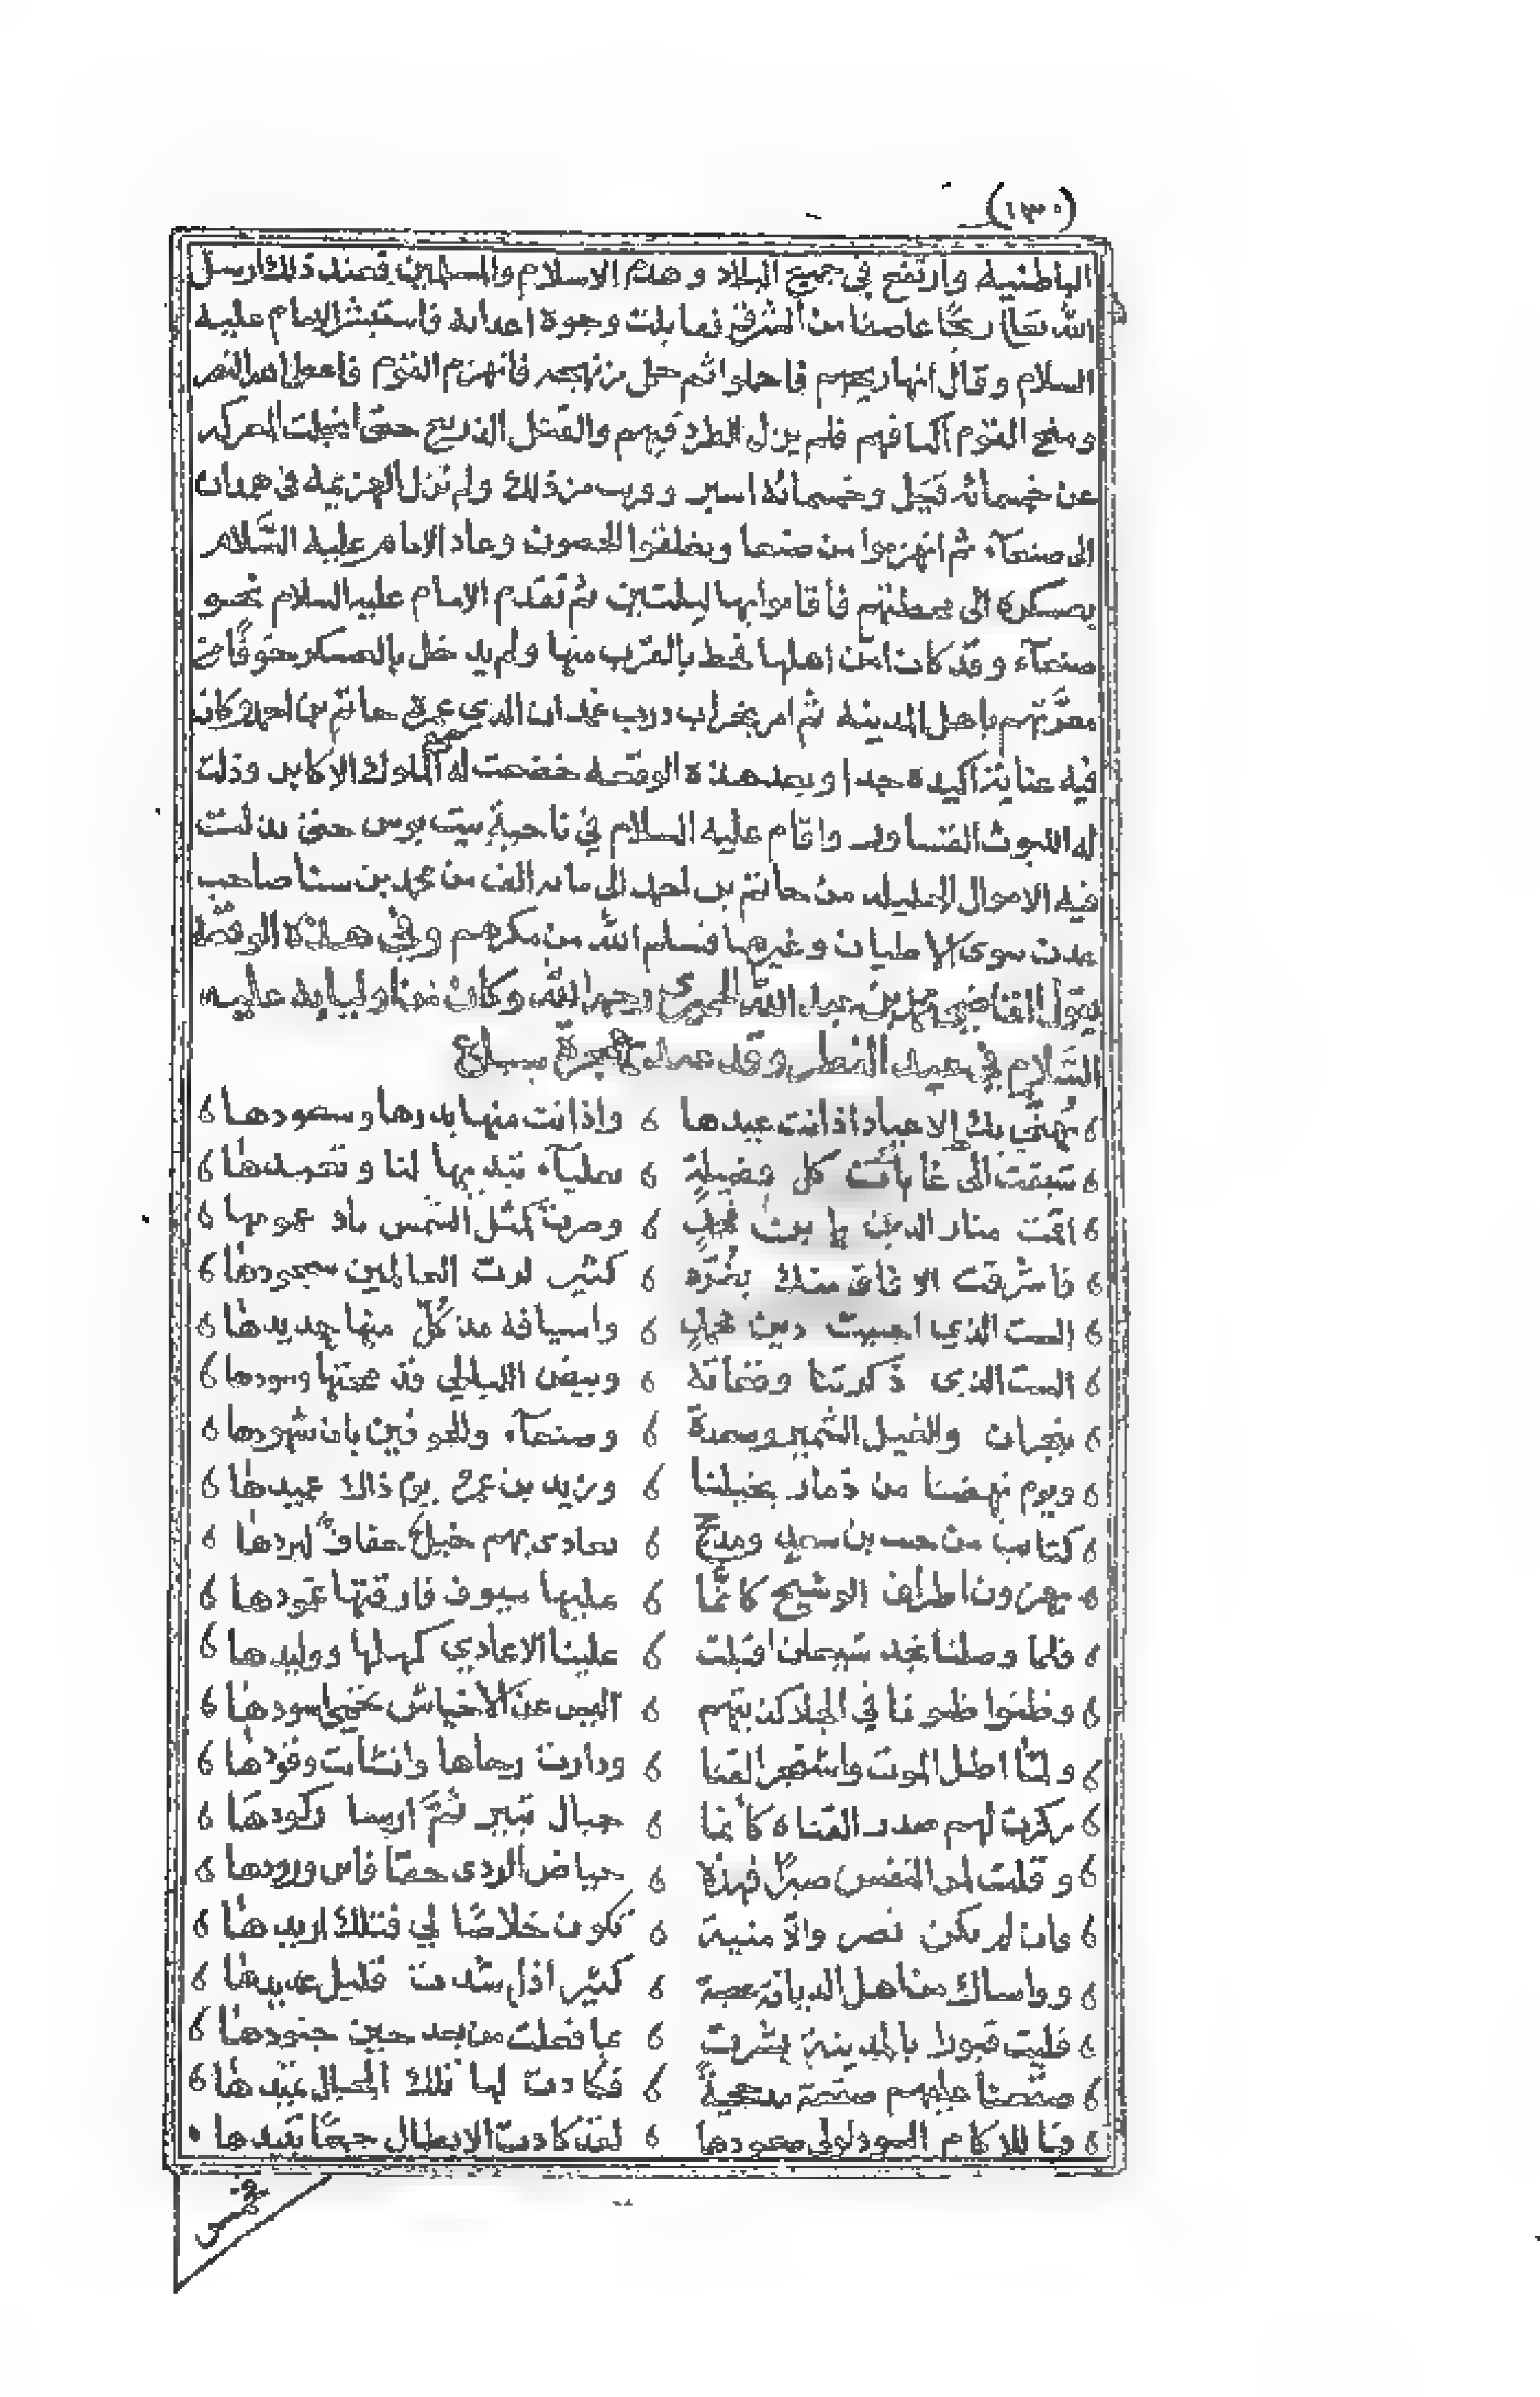 (١٣٠)
الباطنية وارتفع في جميع البلاد وهدم الاسلام والمسلمين فعند ذلك ارسل
الله تعالى ريحًا عاصفا من الشرق فقابلت وجوه اعدائه فاستبشر الامام عليه
السلام وقال انها ريحكم فاحملوا ثم حمل من نهجه فانهزم القوم فاعطى الله النصر
ومنح القوم اكتافهم فلم يزل الطرد فيهم والقتل الذريع حتى انجلت المعركه
عن خمسمائه قتيل وخمسمائة اسير وقريب من ذلك ولم تزل الهزيمة في همدان
الى صنعآء ثم انهزموا من صنعا وتعلقوا الحصون وعاد الامام عليه السَّلام
بعسكره الى محطتهم فاقاموا بها ليلتين ثم تقدم الامام عليه السلام نحو
صنعآء وقد كان امن اهلها فحط بالقرب منها ولم يدخل بالعسكر خوفًا من
معرَّتهم باهل المدينة ثم امر بخراب درب غمدان الذي عمره حاتم بن احمد وكان
فيه عناية اكيده جدا وبعد هذه الوقعه خضعت له الملوك الاكابر وذلت
له الليوث القساور واقام عليه السلام في ناحية بيت بوس حتى بذلت
فيه الاموال الجليله من حاتم بن احمد الى مائه الف من محمد بن سبا صاحب
عدن سوى الاطيان وغيرها فسلم الله من مكرهم وفي هذه الوقعة
يقول القاضي محمد بن عبد الله الحميري رحمه الله وكان من اوليائه عليه
السَّلام في عيد الفطر وقد عمد الى هجرة سناع
يُهنّي بك الاعياد اذ انت عيدها 6 واذ انت منها بدرها وسعودها
سبقت الى غايات كل فضيلة 6 بعليآء تبديها لنا وتعيدها
اقمت منار الدين يا بن محمد 6 وصرت كمثل الشمس باد عمودها
فاشرقت الافاق منك بغُرّه 6 كثير لرب العالمين سجودها
الست الذي احييت دين محمد 6 واسيافه مذ كلّ منها حديدها
الست الذي ذكرتنا وقعاته 6 وبيض الليالي قد محتها وسودها
بنجران والغيل الشهير وصعدة 6 وصنعآء والجوفين بانت شهودها
ويوم نهضنا من ذمار بخيلنا 6 وزيد بن عمرو يوم ذاك عميدها
كتائب من جنب بن سعد ومذحج 6 تعادى بهم خيل
يهزون اطراف الوشيج كانما 6 عليها سيوف فارقتها غمودها
ولما وصلنا نجد شيعان اقبلت 6 علينا الاعادي كهلها ووليدها
وظنوا ظنونا في الجلا كذبتهم 6 اليس عن الاخياس تحمى اسودها
ولمّا اطل الموت واشتجر القنا 6 ودارت رحاها وانتأت وقودها
ركزت لهم صدر القناه كانما 6 جبال ثبير ثمَّ ارسا ركودها
وقلت لهى النفس صبرًا فهذه 6 حياض الردى حقا فاين ورودها
وان لم يكن نصر والا منية 6 تكون خلاصًا لي فتلك اريدها
وواساك من اهل الديانة عصبة 6 كثير اذا شدت قليل عديدها
فليت قبورا بالمدينة بشرت 6 بما فعلت من بعد حين جنودها
صفحنا عليهم صفحة مذحجية 6 فكادت لها تلك الجبال تميدها
وما للاكام السود لولا صعودها 6 لقد كادت الابطال جمعًا تبيدها